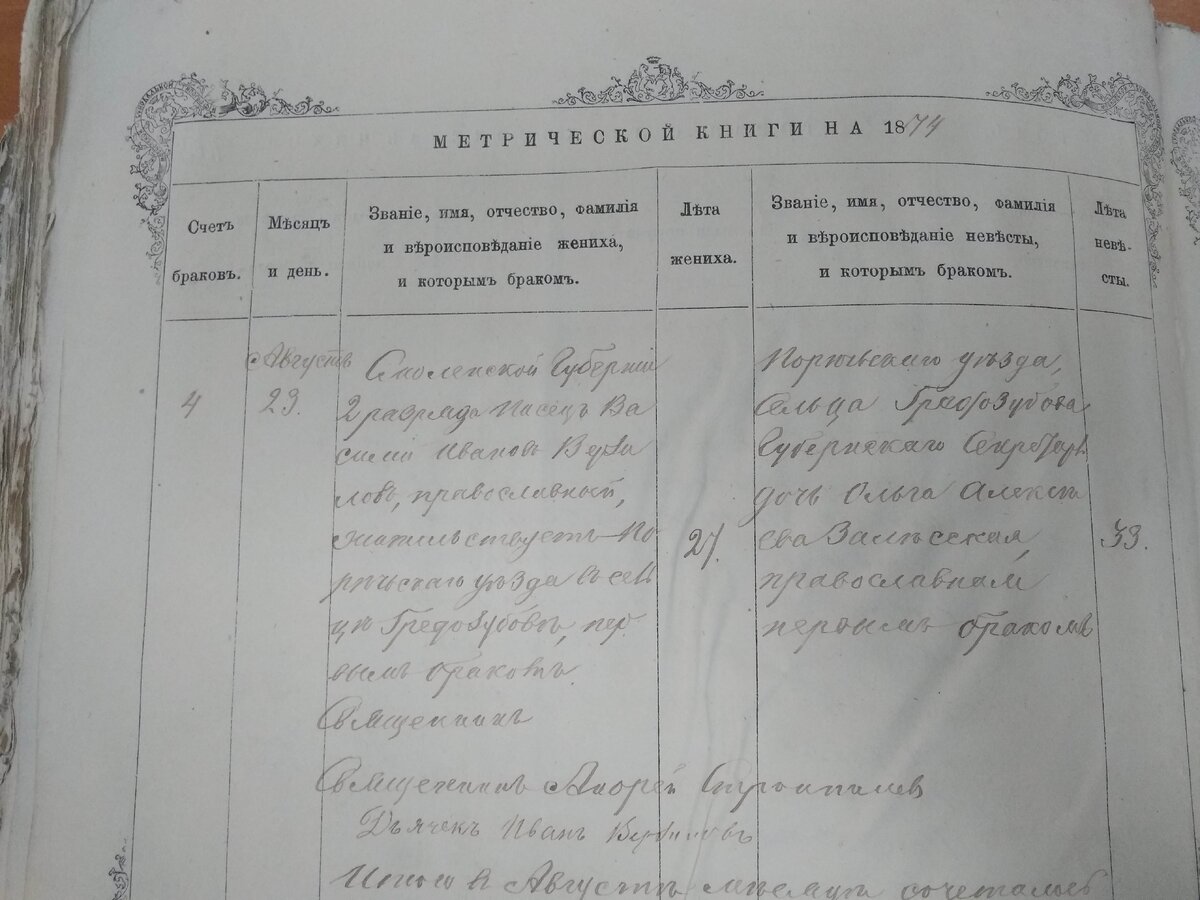 МЕТРИЧЕСКОЙ КНИГИ НА 1874
Счетъ
браковъ.
Мѣсяцъ
и день.
Званіе, имя, отчество, фамилія
и вѣроисповѣданіе жениха,
и которымъ бракомъ.
Лѣта
жениха.
Званіе, имя, отчество, фамилія
и вѣроисповѣданіе невѣсты,
и которымъ бракомъ.
Лѣта
невѣ-
сты.
4
Августъ
23.
Смоленской Губерніи
2 разряда Писецъ Ва
силій Ивановъ
православный,
жительствуетъ По-
рѣчьскаго уѣзда въ сель
цѣ Гредозубовѣ, пер
вымъ бракомъ.
Священникъ
27.
Порѣчьскаго уѣзда,
Сельца Гредозубова
Губернскаго Секретаря
дочь Ольга Алексѣ
ева Залѣсская,
православная
первымъ бракомъ
33.
Священникъ Андрей
Дьячекъ Иванъ
Итого въ Августѣ мѣсяцѣ сочеталось